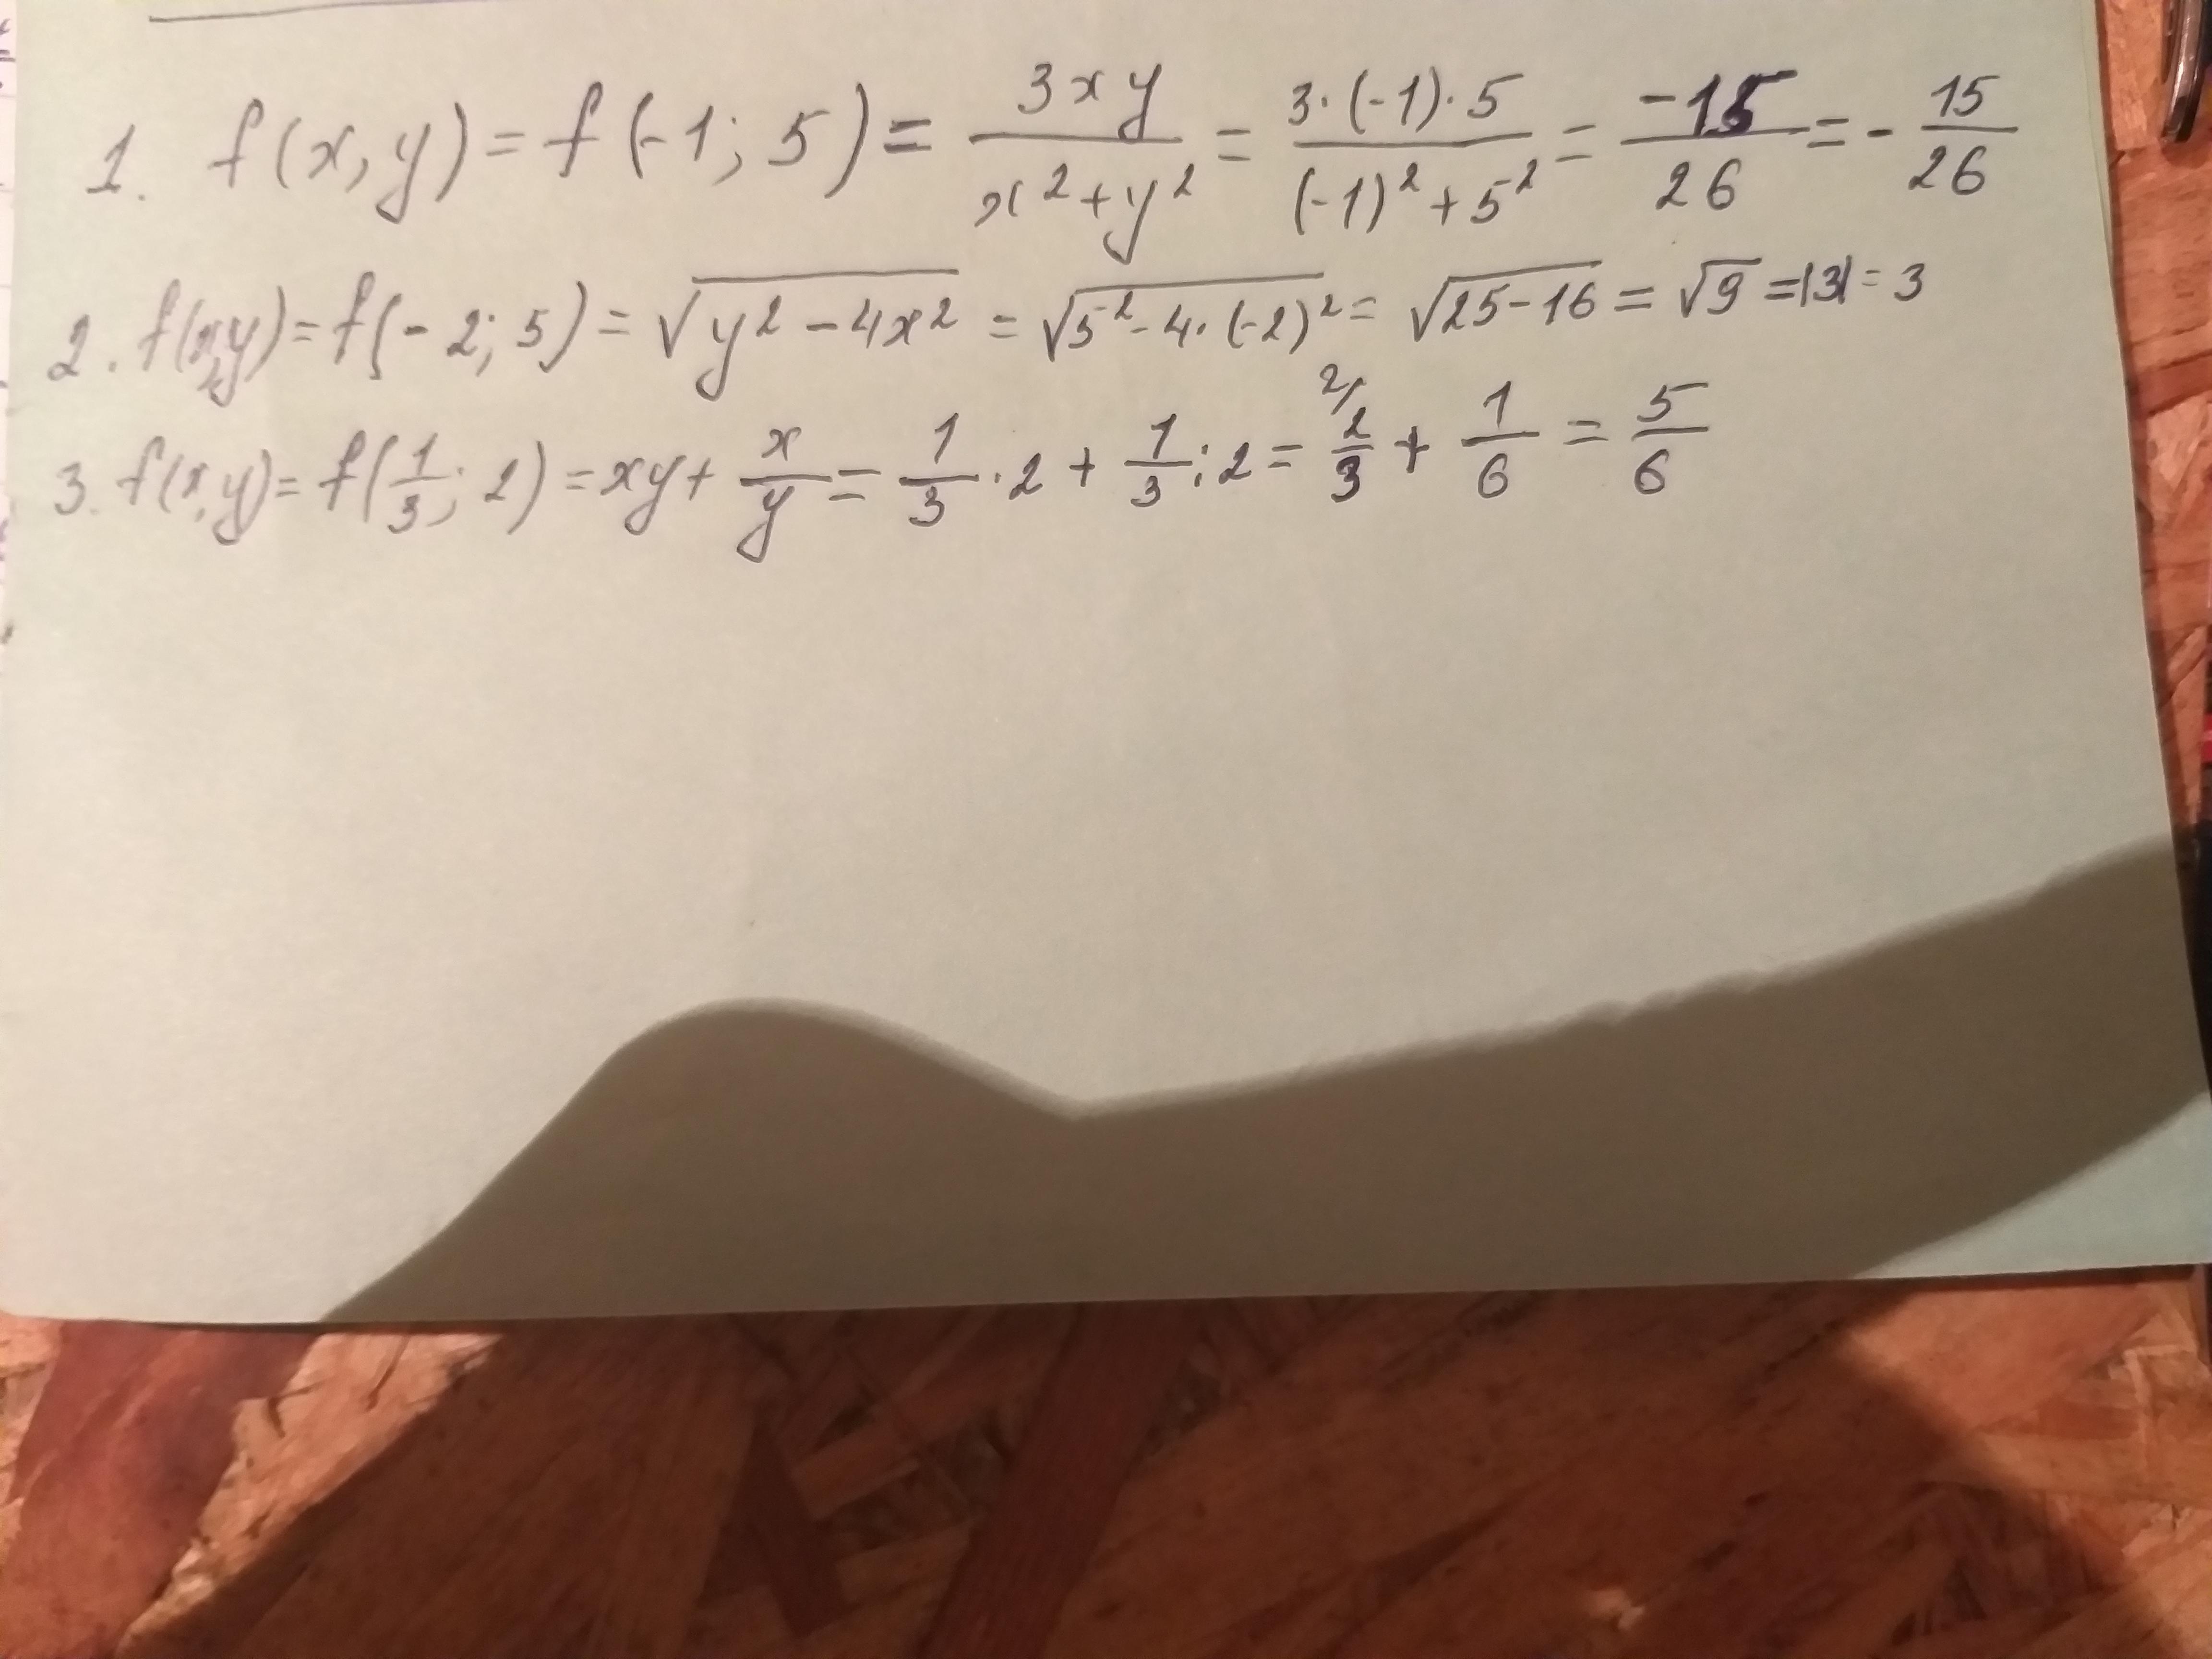 1. f(x,y) = f(-1; 5) = 3xy/(x²+y²) = 3·(-1)·5/((-1)²+5²) = -15/26 = -15/26
2. f(x,y) = f(-2; 5) = √(y²-4x²) = √(5²-4·(-2)²) = √(25-16) = √9 = |3| = 3
3. f(x,y) = f(1/3; 2) = xy + x/y = 1/3·2 + 1/3:2 = ²⁄ 2/3 + 1/6 = 5/6